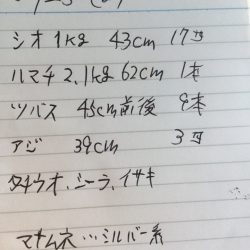 シオ 1kg 43cm 17匹
ハマチ 2.1kg 62cm 1本
ツバス 45cm前後 9本
アジ 39cm 3匹
タチウオ、シーラ、イサキ
マサムネ…シルバー系